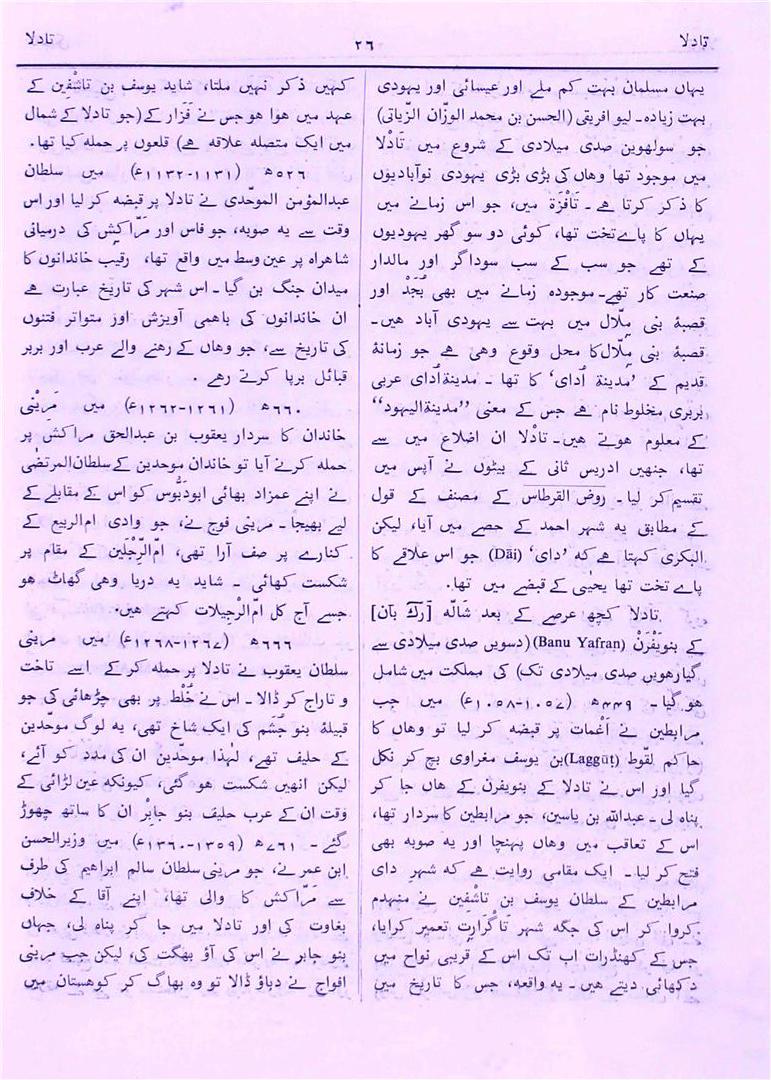 تادلا
٢٦
تادلا
یہاں مسلمان بہت کم ملے اور عیسائی اور یہودی
بہت زیادہ۔ لیو افریقی (الحسن بن محمد الوزّان الزّیاتی)
جو سولھویں صدی میلادی کے شروع میں تَادْلا
میں موجود تھا وھاں کی بڑی بڑی یہودی نوآبادیوں
کا ذکر کرتا ھے۔ تَافْزَۃ میں، جو اس زمانے میں
یہاں کا پاے تخت تھا، کوئی دو سو گھر یہودیوں
کے تھے جو سب کے سب سوداگر اور مالدار
صنعت کار تھے۔ موجودہ زمانے میں بھی بُجَدْ اور
قصبۂ بنی مِلّال میں بہت سے یہودی آباد ھیں۔
قصبۂ بنی مِلّال کا محل وقوع وھی ھے جو زمانۂ
قدیم کے ’مدینة اُدای‘ کا تھا۔ مدینةاُدای عربی
بربری مخلوط نام ھے جس کے معنی ”مدینةالیہود“
کے معلوم ھوتے ھیں۔ تادْلا ان اضلاع میں سے
تھا، جنھیں ادریس ثانی کے بیٹوں نے آپس میں
تقسیم کر لیا۔ روض القرطاس کے مصنف کے قول
کے مطابق یہ شہر احمد کے حصے میں آیا، لیکن
البکری کہتا ھے کہ ’دای‘ (Dāi) جو اس علاقے کا
پاے تخت تھا یحیٰی کے قبضے میں تھا۔
تادلا کچھ عرصے کے بعد شالّہ [رکّ بآن]
کے بنویَفْرَنْ (Banu Yafran) (دسویں صدی میلادی سے
گیارھویں صدی میلادی تک) کی مملکت میں شامل
ھو گیا۔ ٤٤٩ھ (١٠٥٧-١٠٥٨ء) میں جب
مرابطین نے اَغْمات پر قبضہ کر لیا تو وھاں کا
حاکم لقّوط (Laggūṭ) بن یوسف مغراوی بچ کر نکل
گیا اور اس نے تادلا کے بنویفرن کے ھاں جا کر
پناہ لی۔ عبداللہ بن یاسین، جو مرابطین کا سردار تھا،
اس کے تعاقب میں وھاں پہنچا اور یہ صوبہ بھی
فتح کر لیا۔ ایک مقامی روایت ھے کہ شہر دای
مرابطین کے سلطان یوسف بن تاشْفِین نے منہدم
کروا کر اس کی جگہ شہر تَاگْرَارِت تعمیر کرایا،
جس کے کھنڈرات اب تک اس کے قریبی نواح میں
دکھائی دیتے ھیں۔ یہ واقعہ، جس کا تاریخ میں
کہیں ذکر نہیں ملتا، شاید یوسف بن تاشْفِین کے
عہد میں ھوا ھو جس نے فَزار کے (جو تادلا کے شمال
میں ایک متصلہ علاقہ ھے) قلعوں پر حملہ کیا تھا۔
٥٢٦ھ (١١٣١-١١٣٢ء) میں سلطان
عبدالمؤمن الموحّدی نے تادلا پر قبضہ کر لیا اور اس
وقت سے یہ صوبہ، جو فاس اور مَرّاکُش کی درمیانی
شاھراہ پر عین وسط میں واقع تھا، رقیب خاندانوں کا
میدان جنگ بن گیا۔ اس شہر کی تاریخ عبارت ھے
ان خاندانوں کی باھمی آویزش اور متواتر فتنوں
کی تاریخ سے، جو وھاں کے رھنے والے عرب اور بربر
قبائل برپا کرتے رھے۔
٦٦٠ھ (١٢٦١-١٢٦٢ء) میں مَرِیْنی
خاندان کا سردار یعقوب بن عبدالحق مراکش پر
حملہ کرنے آیا تو خاندان موحدین کے سلطان المرتضٰی
نے اپنے عمزاد بھائی ابودَبُّوس کو اس کے مقابلے کے
لیے بھیجا۔ مرینی فوج نے، جو وادی ام‌الربیع کے
کنارے پر صف آرا تھی، امّ‌الرِّجْلَین کے مقام پر
شکست کھائی۔ شاید یہ دریا وھی گھاٹ ھو
جسے آج کل امّ‌الرْجیلات کہتے ھیں۔
٦٦٦ھ (١٢٦٧-١٢٦٨ء) میں مرینی
سلطان یعقوب نے تادلا پر حملہ کر کے اسے تاخت
و تاراج کر ڈالا۔ اس نے خُلْط پر بھی چڑھائی کی جو
قبیلۂ بنو جُشَم کی ایک شاخ تھی، یہ لوگ موحّدین
کے حلیف تھے، لہٰذا موحّدین ان کی مدد کو آئے،
لیکن انھیں شکست ھو گئی، کیونکہ عین لڑائی کے
وقت ان کے عرب حلیف بنو جابْر ان کا ساتھ چھوڑ
گئے۔ ٧٦١ھ (١٣٥٩-١٣٦٠ء) میں وزیرالحسن
ابن عمر نے، جو مرینی سلطان سالم ابراھیم کی طرف
سے مَرّاکش کا والی تھا، اپنے آقا کے خلاف
بغاوت کی اور تادلا میں جا کر پناہ لی، جہاں
بنو جابر نے اس کی آؤ بھگت کی، لیکن جب مرینی
افواج نے دباؤ ڈالا تو وہ بھاگ کر کوھستان میں